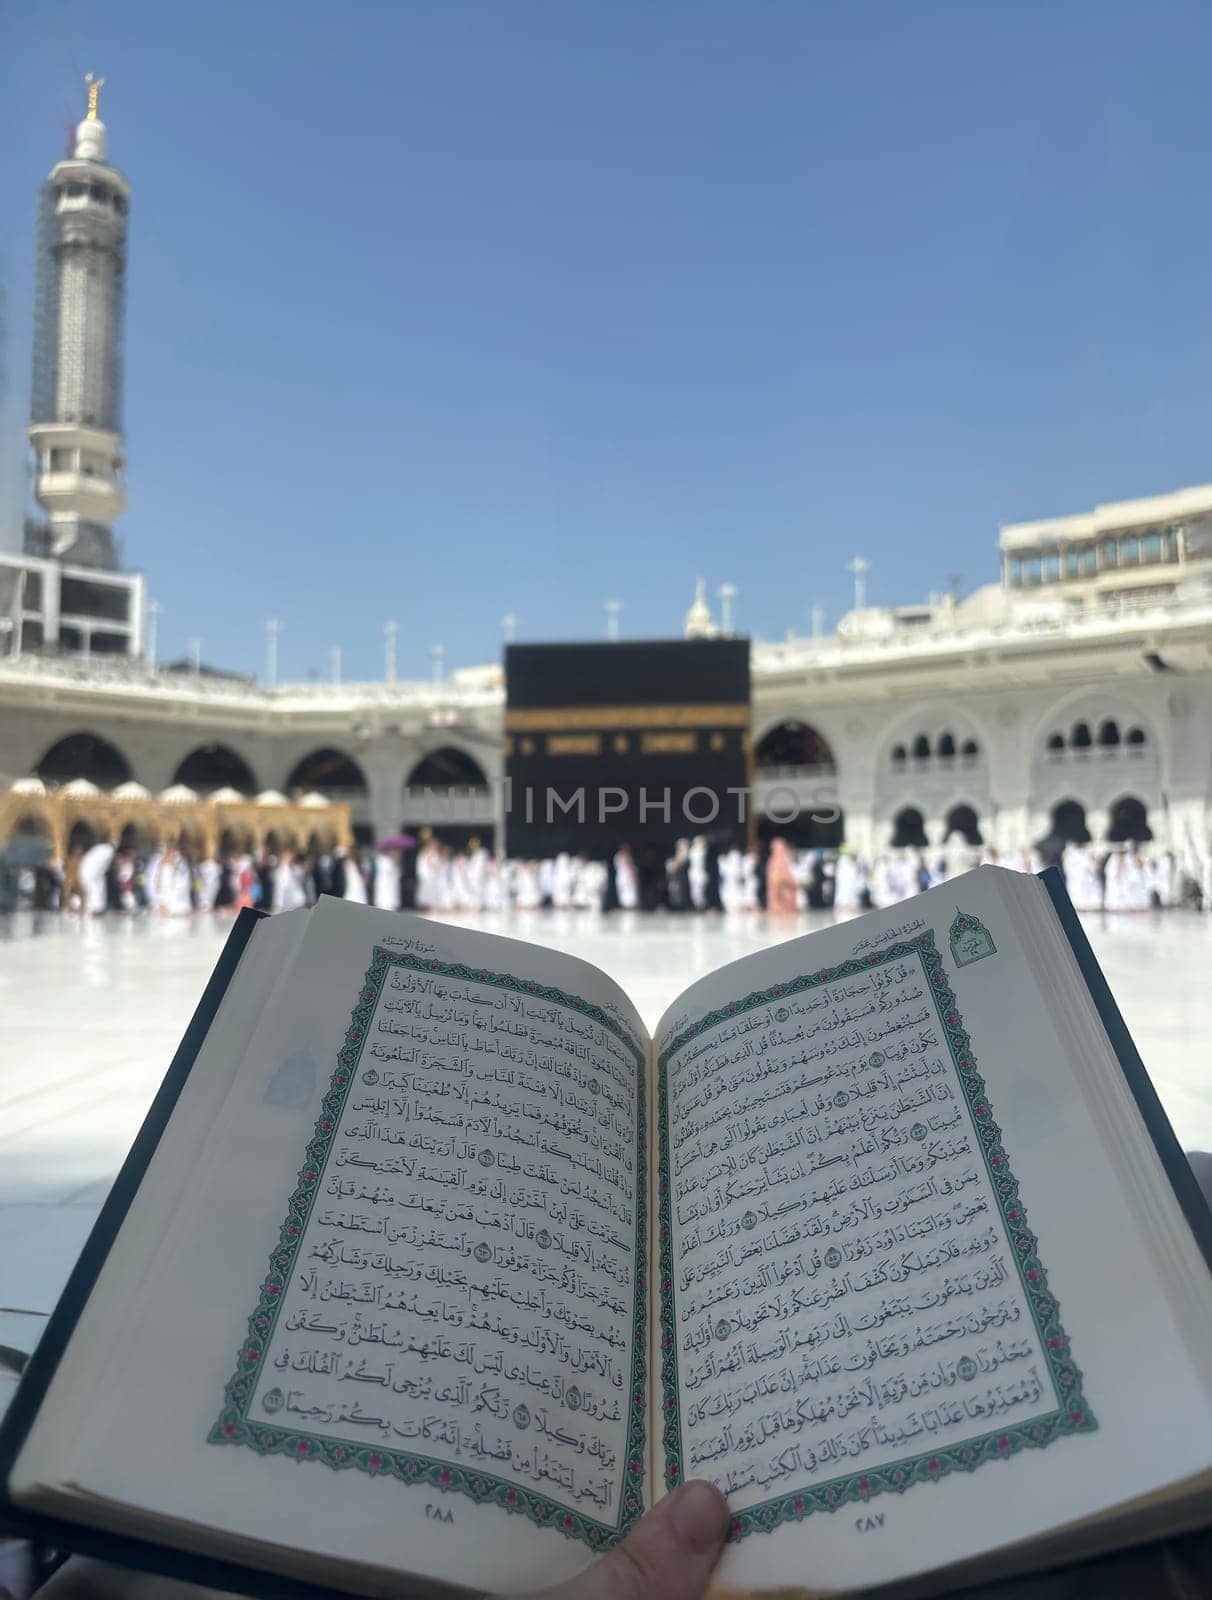 الجُزْءُ الخَامِسَ عَشَرَ
۞ قُلْ كُونُوا۟ حِجَارَةً أَوْ حَدِيدًا ٥٠ أَوْ خَلْقًا مِّمَّا يَكْبُرُ فِى
صُدُورِكُمْ ۚ فَسَيَقُولُونَ مَن يُعِيدُنَا ۖ قُلِ ٱلَّذِى فَطَرَكُمْ أَوَّلَ مَرَّةٍ
فَسَيُنْغِضُونَ إِلَيْكَ رُءُوسَهُمْ وَيَقُولُونَ مَتَىٰ هُوَ ۖ قُلْ عَسَىٰٓ أَن
يَكُونَ قَرِيبًا ٥١ يَوْمَ يَدْعُوكُمْ فَتَسْتَجِيبُونَ بِحَمْدِهِۦ وَتَظُنُّونَ
إِن لَّبِثْتُمْ إِلَّا قَلِيلًا ٥٢ وَقُل لِّعِبَادِى يَقُولُوا۟ ٱلَّتِى هِىَ أَحْسَنُ
إِنَّ ٱلشَّيْطَٰنَ يَنزَغُ بَيْنَهُمْ ۚ إِنَّ ٱلشَّيْطَٰنَ كَانَ لِلْإِنسَٰنِ عَدُوًّا
مُّبِينًا ٥٣ رَّبُّكُمْ أَعْلَمُ بِكُمْ ۖ إِن يَشَأْ يَرْحَمْكُمْ أَوْ إِن يَشَأْ
يُعَذِّبْكُمْ ۚ وَمَآ أَرْسَلْنَٰكَ عَلَيْهِمْ وَكِيلًا ٥٤ وَرَبُّكَ أَعْلَمُ
بِمَن فِى ٱلسَّمَٰوَٰتِ وَٱلْأَرْضِ ۗ وَلَقَدْ فَضَّلْنَا بَعْضَ ٱلنَّبِيِّۦنَ عَلَىٰ
بَعْضٍ ۖ وَءَاتَيْنَا دَاوُۥدَ زَبُورًا ٥٥ قُلِ ٱدْعُوا۟ ٱلَّذِينَ زَعَمْتُم مِّن
دُونِهِۦ فَلَا يَمْلِكُونَ كَشْفَ ٱلضُّرِّ عَنكُمْ وَلَا تَحْوِيلًا ٥٦ أُو۟لَٰٓئِكَ
ٱلَّذِينَ يَدْعُونَ يَبْتَغُونَ إِلَىٰ رَبِّهِمُ ٱلْوَسِيلَةَ أَيُّهُمْ أَقْرَبُ
وَيَرْجُونَ رَحْمَتَهُۥ وَيَخَافُونَ عَذَابَهُۥٓ ۚ إِنَّ عَذَابَ رَبِّكَ كَانَ
مَحْذُورًا ٥٧ وَإِن مِّن قَرْيَةٍ إِلَّا نَحْنُ مُهْلِكُوهَا قَبْلَ يَوْمِ ٱلْقِيَٰمَةِ
أَوْ مُعَذِّبُوهَا عَذَابًا شَدِيدًا ۚ كَانَ ذَٰلِكَ فِى ٱلْكِتَٰبِ مَسْطُورًا
٢٨٧
سُورَةُ الإِسْرَاءِ
وَمَا مَنَعَنَآ أَن نُّرْسِلَ بِٱلْءَايَٰتِ إِلَّآ أَن كَذَّبَ بِهَا ٱلْأَوَّلُونَ
وَءَاتَيْنَا ثَمُودَ ٱلنَّاقَةَ مُبْصِرَةً فَظَلَمُوا۟ بِهَا ۚ وَمَا نُرْسِلُ بِٱلْءَايَٰتِ
إِلَّا تَخْوِيفًا ٥٩ وَإِذْ قُلْنَا لَكَ إِنَّ رَبَّكَ أَحَاطَ بِٱلنَّاسِ ۚ وَمَا جَعَلْنَا
ٱلرُّءْيَا ٱلَّتِىٓ أَرَيْنَٰكَ إِلَّا فِتْنَةً لِّلنَّاسِ وَٱلشَّجَرَةَ ٱلْمَلْعُونَةَ
فِى ٱلْقُرْءَانِ ۚ وَنُخَوِّفُهُمْ فَمَا يَزِيدُهُمْ إِلَّا طُغْيَٰنًا كَبِيرًا ٦٠
وَإِذْ قُلْنَا لِلْمَلَٰٓئِكَةِ ٱسْجُدُوا۟ لِءَادَمَ فَسَجَدُوٓا۟ إِلَّآ إِبْلِيسَ
قَالَ ءَأَسْجُدُ لِمَنْ خَلَقْتَ طِينًا ٦١ قَالَ أَرَءَيْتَكَ هَٰذَا ٱلَّذِى
كَرَّمْتَ عَلَىَّ لَئِنْ أَخَّرْتَنِ إِلَىٰ يَوْمِ ٱلْقِيَٰمَةِ لَأَحْتَنِكَنَّ
ذُرِّيَّتَهُۥٓ إِلَّا قَلِيلًا ٦٢ قَالَ ٱذْهَبْ فَمَن تَبِعَكَ مِنْهُمْ فَإِنَّ
جَهَنَّمَ جَزَآؤُكُمْ جَزَآءً مَّوْفُورًا ٦٣ وَٱسْتَفْزِزْ مَنِ ٱسْتَطَعْتَ
مِنْهُم بِصَوْتِكَ وَأَجْلِبْ عَلَيْهِم بِخَيْلِكَ وَرَجِلِكَ وَشَارِكْهُمْ
فِى ٱلْأَمْوَٰلِ وَٱلْأَوْلَٰدِ وَعِدْهُمْ ۚ وَمَا يَعِدُهُمُ ٱلشَّيْطَٰنُ إِلَّا
غُرُورًا ٦٤ إِنَّ عِبَادِى لَيْسَ لَكَ عَلَيْهِمْ سُلْطَٰنٌ ۚ وَكَفَىٰ
بِرَبِّكَ وَكِيلًا ٦٥ رَّبُّكُمُ ٱلَّذِى يُزْجِى لَكُمُ ٱلْفُلْكَ فِى
ٱلْبَحْرِ لِتَبْتَغُوا۟ مِن فَضْلِهِۦٓ ۚ إِنَّهُۥ كَانَ بِكُمْ رَحِيمًا ٦٦
٢٨٨